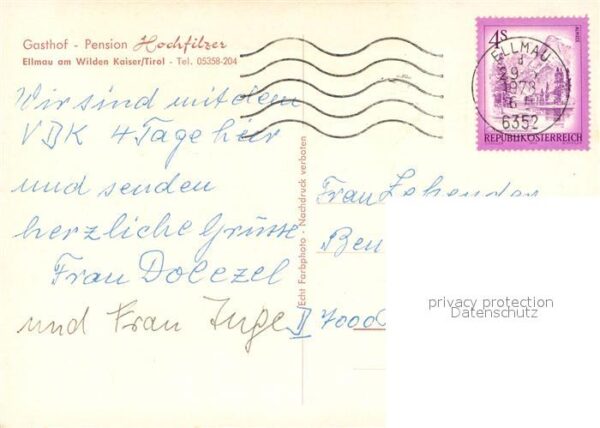 Gasthof - Pension Hochfilzer
Ellmau am Wilden Kaiser/Tirol - Tel. 05358-204
Wir sind mit dem
VBK 4 Tage hier
und senden
herzliche Grüsse
Frau Dolezel
und Frau Inge II
Echt Farbphoto - Nachdruck verboten
4s
ALMSEE
REPUBLIK ÖSTERREICH
ELLMAU
1978
6352
Frau
Ben
7000
privacy protection
Datenschutz